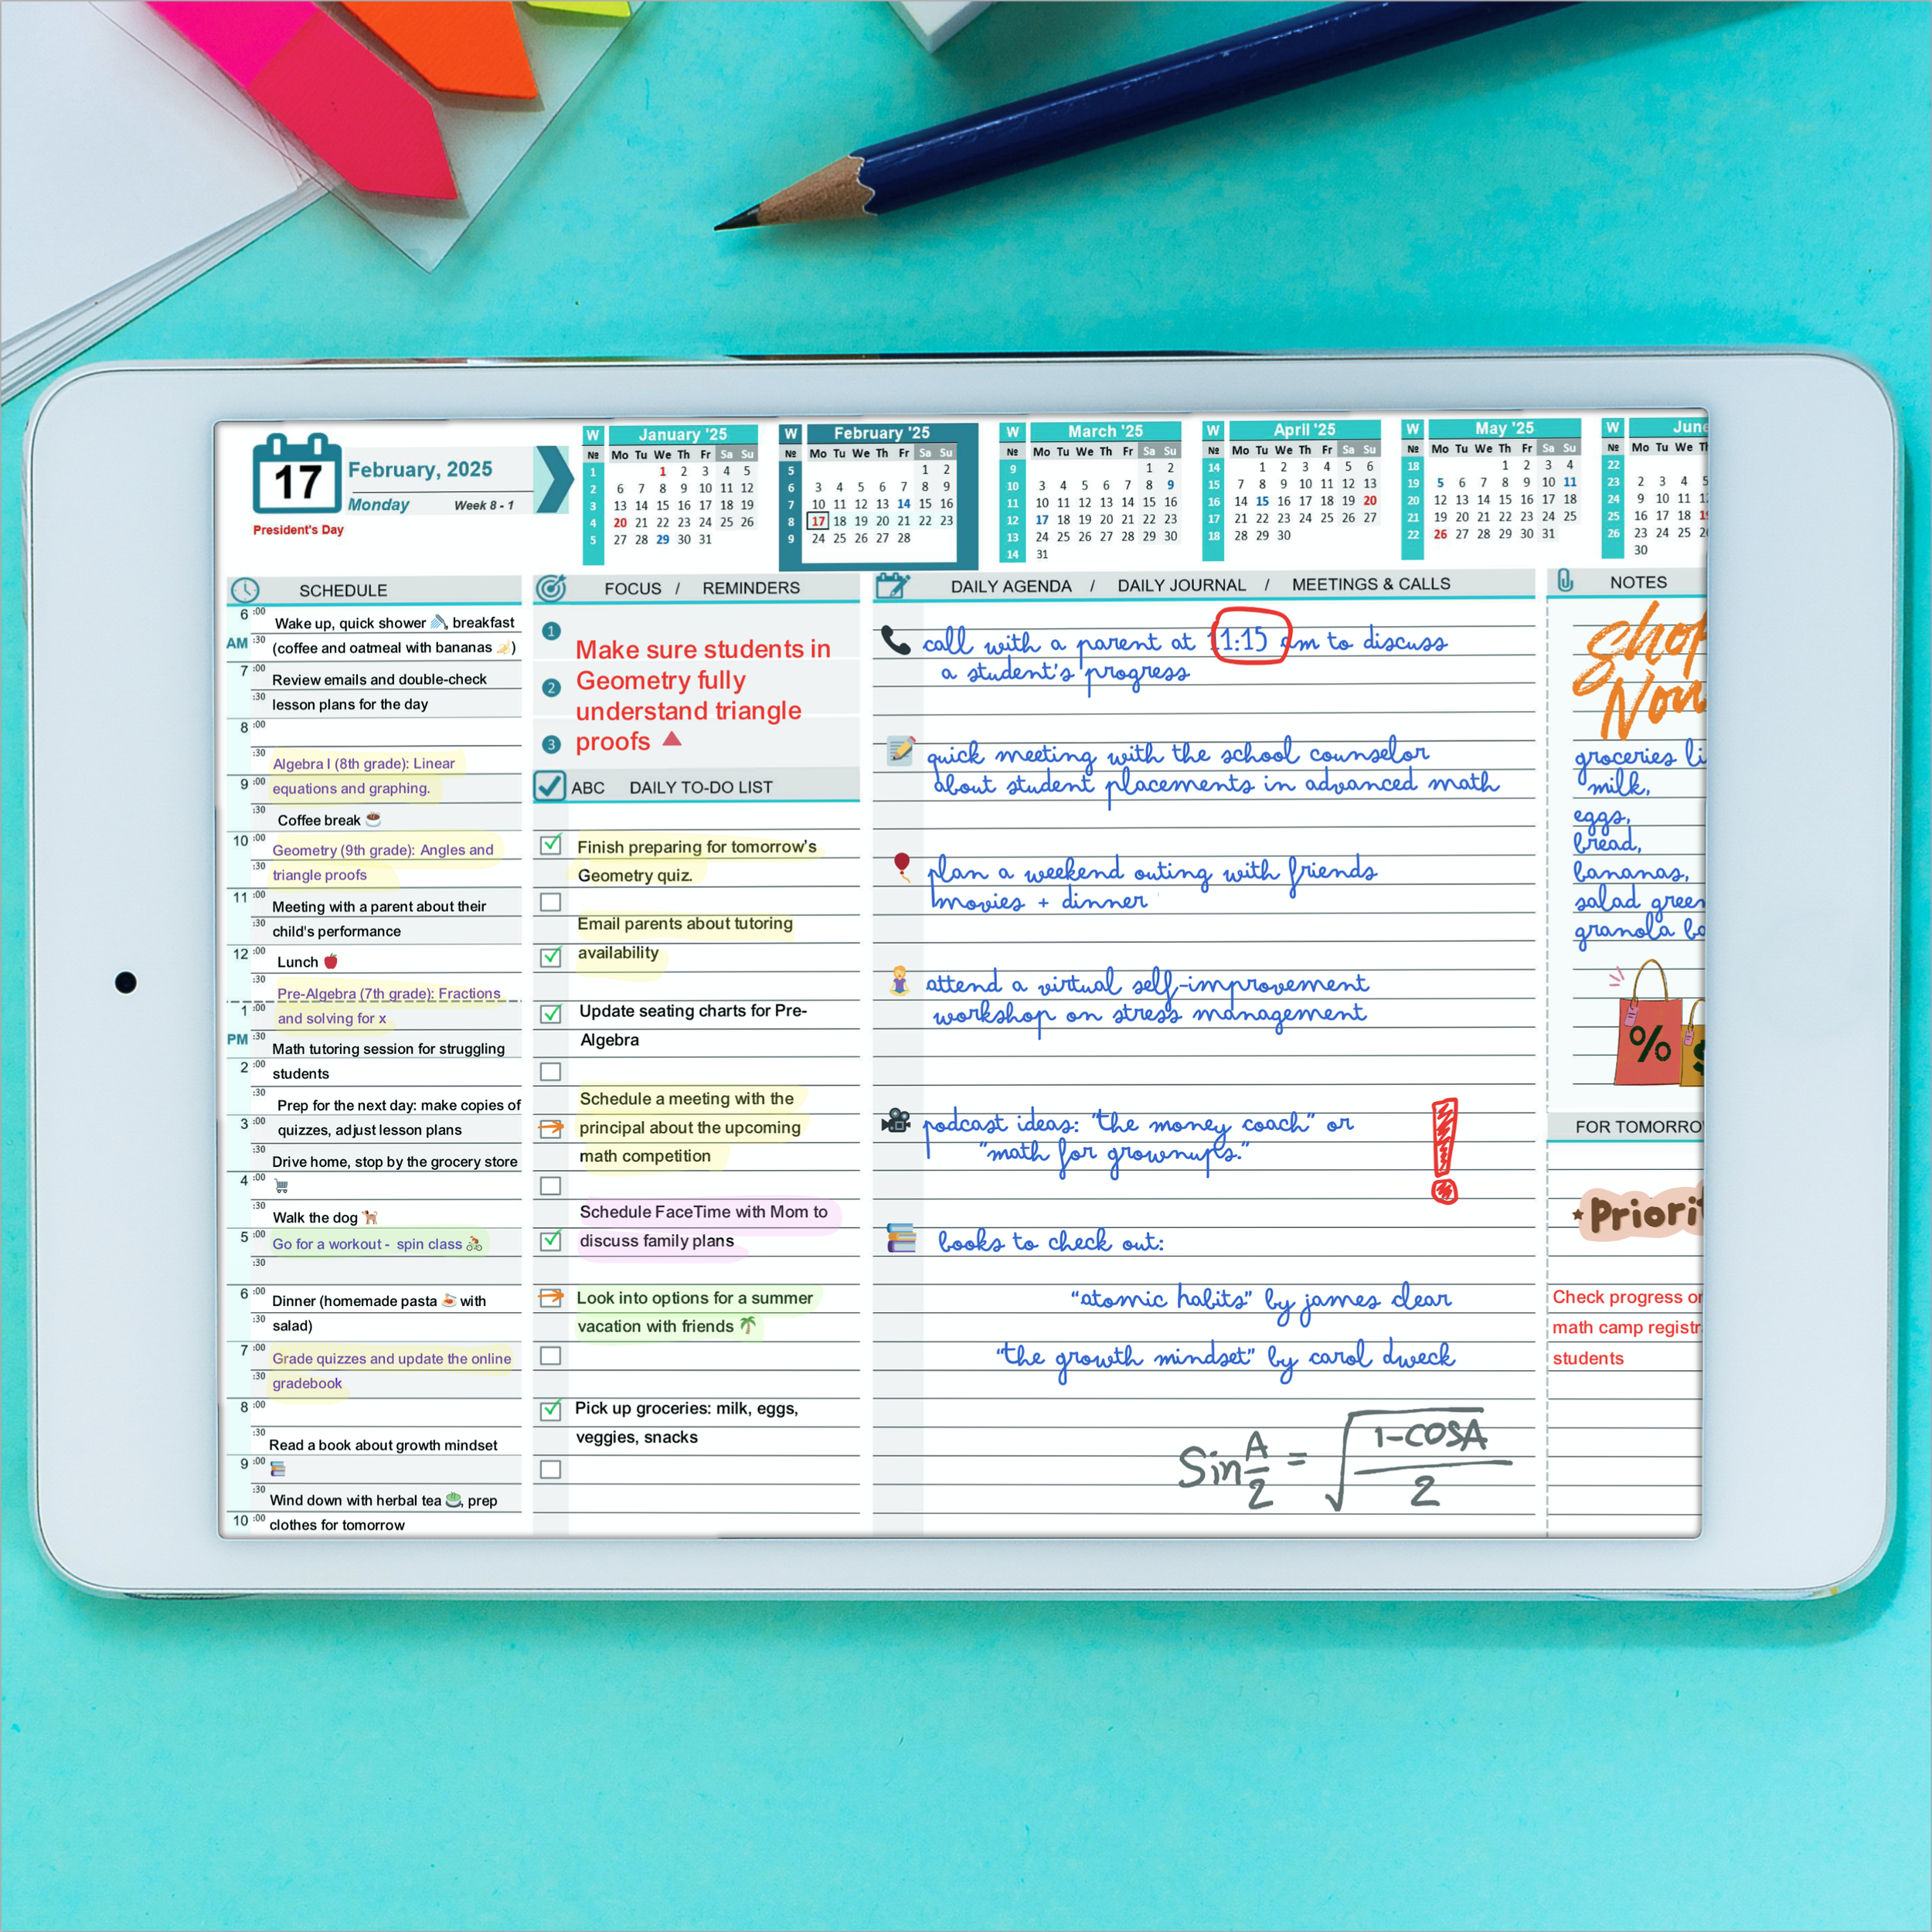 17
February, 2025
Monday
Week 8 - 1
President's Day
W January '25
№ Mo Tu We Th Fr Sa Su
1 1 2 3 4 5
2 6 7 8 9 10 11 12
3 13 14 15 16 17 18 19
4 20 21 22 23 24 25 26
5 27 28 29 30 31
W February '25
№ Mo Tu We Th Fr Sa Su
5 1 2
6 3 4 5 6 7 8 9
7 10 11 12 13 14 15 16
8 17 18 19 20 21 22 23
9 24 25 26 27 28
W March '25
№ Mo Tu We Th Fr Sa Su
9 1 2
10 3 4 5 6 7 8 9
11 10 11 12 13 14 15 16
12 17 18 19 20 21 22 23
13 24 25 26 27 28 29 30
14 31
W April '25
№ Mo Tu We Th Fr Sa Su
14 1 2 3 4 5 6
15 7 8 9 10 11 12 13
16 14 15 16 17 18 19 20
17 21 22 23 24 25 26 27
18 28 29 30
W May '25
№ Mo Tu We Th Fr Sa Su
18 1 2 3 4
19 5 6 7 8 9 10 11
20 12 13 14 15 16 17 18
21 19 20 21 22 23 24 25
22 26 27 28 29 30 31
W June
№ Mo Tu We
22
23 2 3 4
24 9 10 11
25 16 17 18
26 23 24 25
30
SCHEDULE
6 :00 Wake up, quick shower breakfast
AM :30 (coffee and oatmeal with bananas )
7 :00 Review emails and double-check
:30 lesson plans for the day
8 :00
:30 Algebra I (8th grade): Linear
9 :00 equations and graphing.
:30 Coffee break
10 :00 Geometry (9th grade): Angles and
:30 triangle proofs
11 :00 Meeting with a parent about their
:30 child's performance
12 :00 Lunch
:30 Pre-Algebra (7th grade): Fractions
1 :00 and solving for x
PM :30 Math tutoring session for struggling
2 :00 students
:30 Prep for the next day: make copies of
3 :00 quizzes, adjust lesson plans
:30 Drive home, stop by the grocery store
4 :00
:30 Walk the dog
5 :00 Go for a workout - spin class
:30
6 :00 Dinner (homemade pasta with
:30 salad)
7 :00 Grade quizzes and update the online
:30 gradebook
8 :00
:30 Read a book about growth mindset
9 :00
:30 Wind down with herbal tea , prep
10 :00 clothes for tomorrow
FOCUS / REMINDERS
1
2
3
Make sure students in
Geometry fully
understand triangle
proofs
ABC DAILY TO-DO LIST
Finish preparing for tomorrow's
Geometry quiz.
Email parents about tutoring
availability
Update seating charts for Pre-
Algebra
Schedule a meeting with the
principal about the upcoming
math competition
Schedule FaceTime with Mom to
discuss family plans
Look into options for a summer
vacation with friends
Pick up groceries: milk, eggs,
veggies, snacks
DAILY AGENDA / DAILY JOURNAL / MEETINGS & CALLS
call with a parent at 11:15 am to discuss
a student's progress
quick meeting with the school counselor
about student placements in advanced math
plan a weekend outing with friends
movies + dinner
attend a virtual self-improvement
workshop on stress management
podcast ideas: "the money coach" or
"math for grownups."
!
books to check out:
"atomic habits" by james clear
"the growth mindset" by carol dweck
Sin A/2 = √(1-COSA/2)
NOTES
Shop
Now
groceries li
milk,
eggs,
bread,
bananas,
salad green
granola ba
%
$
FOR TOMORRO
Priorit
Check progress on
math camp registr
students